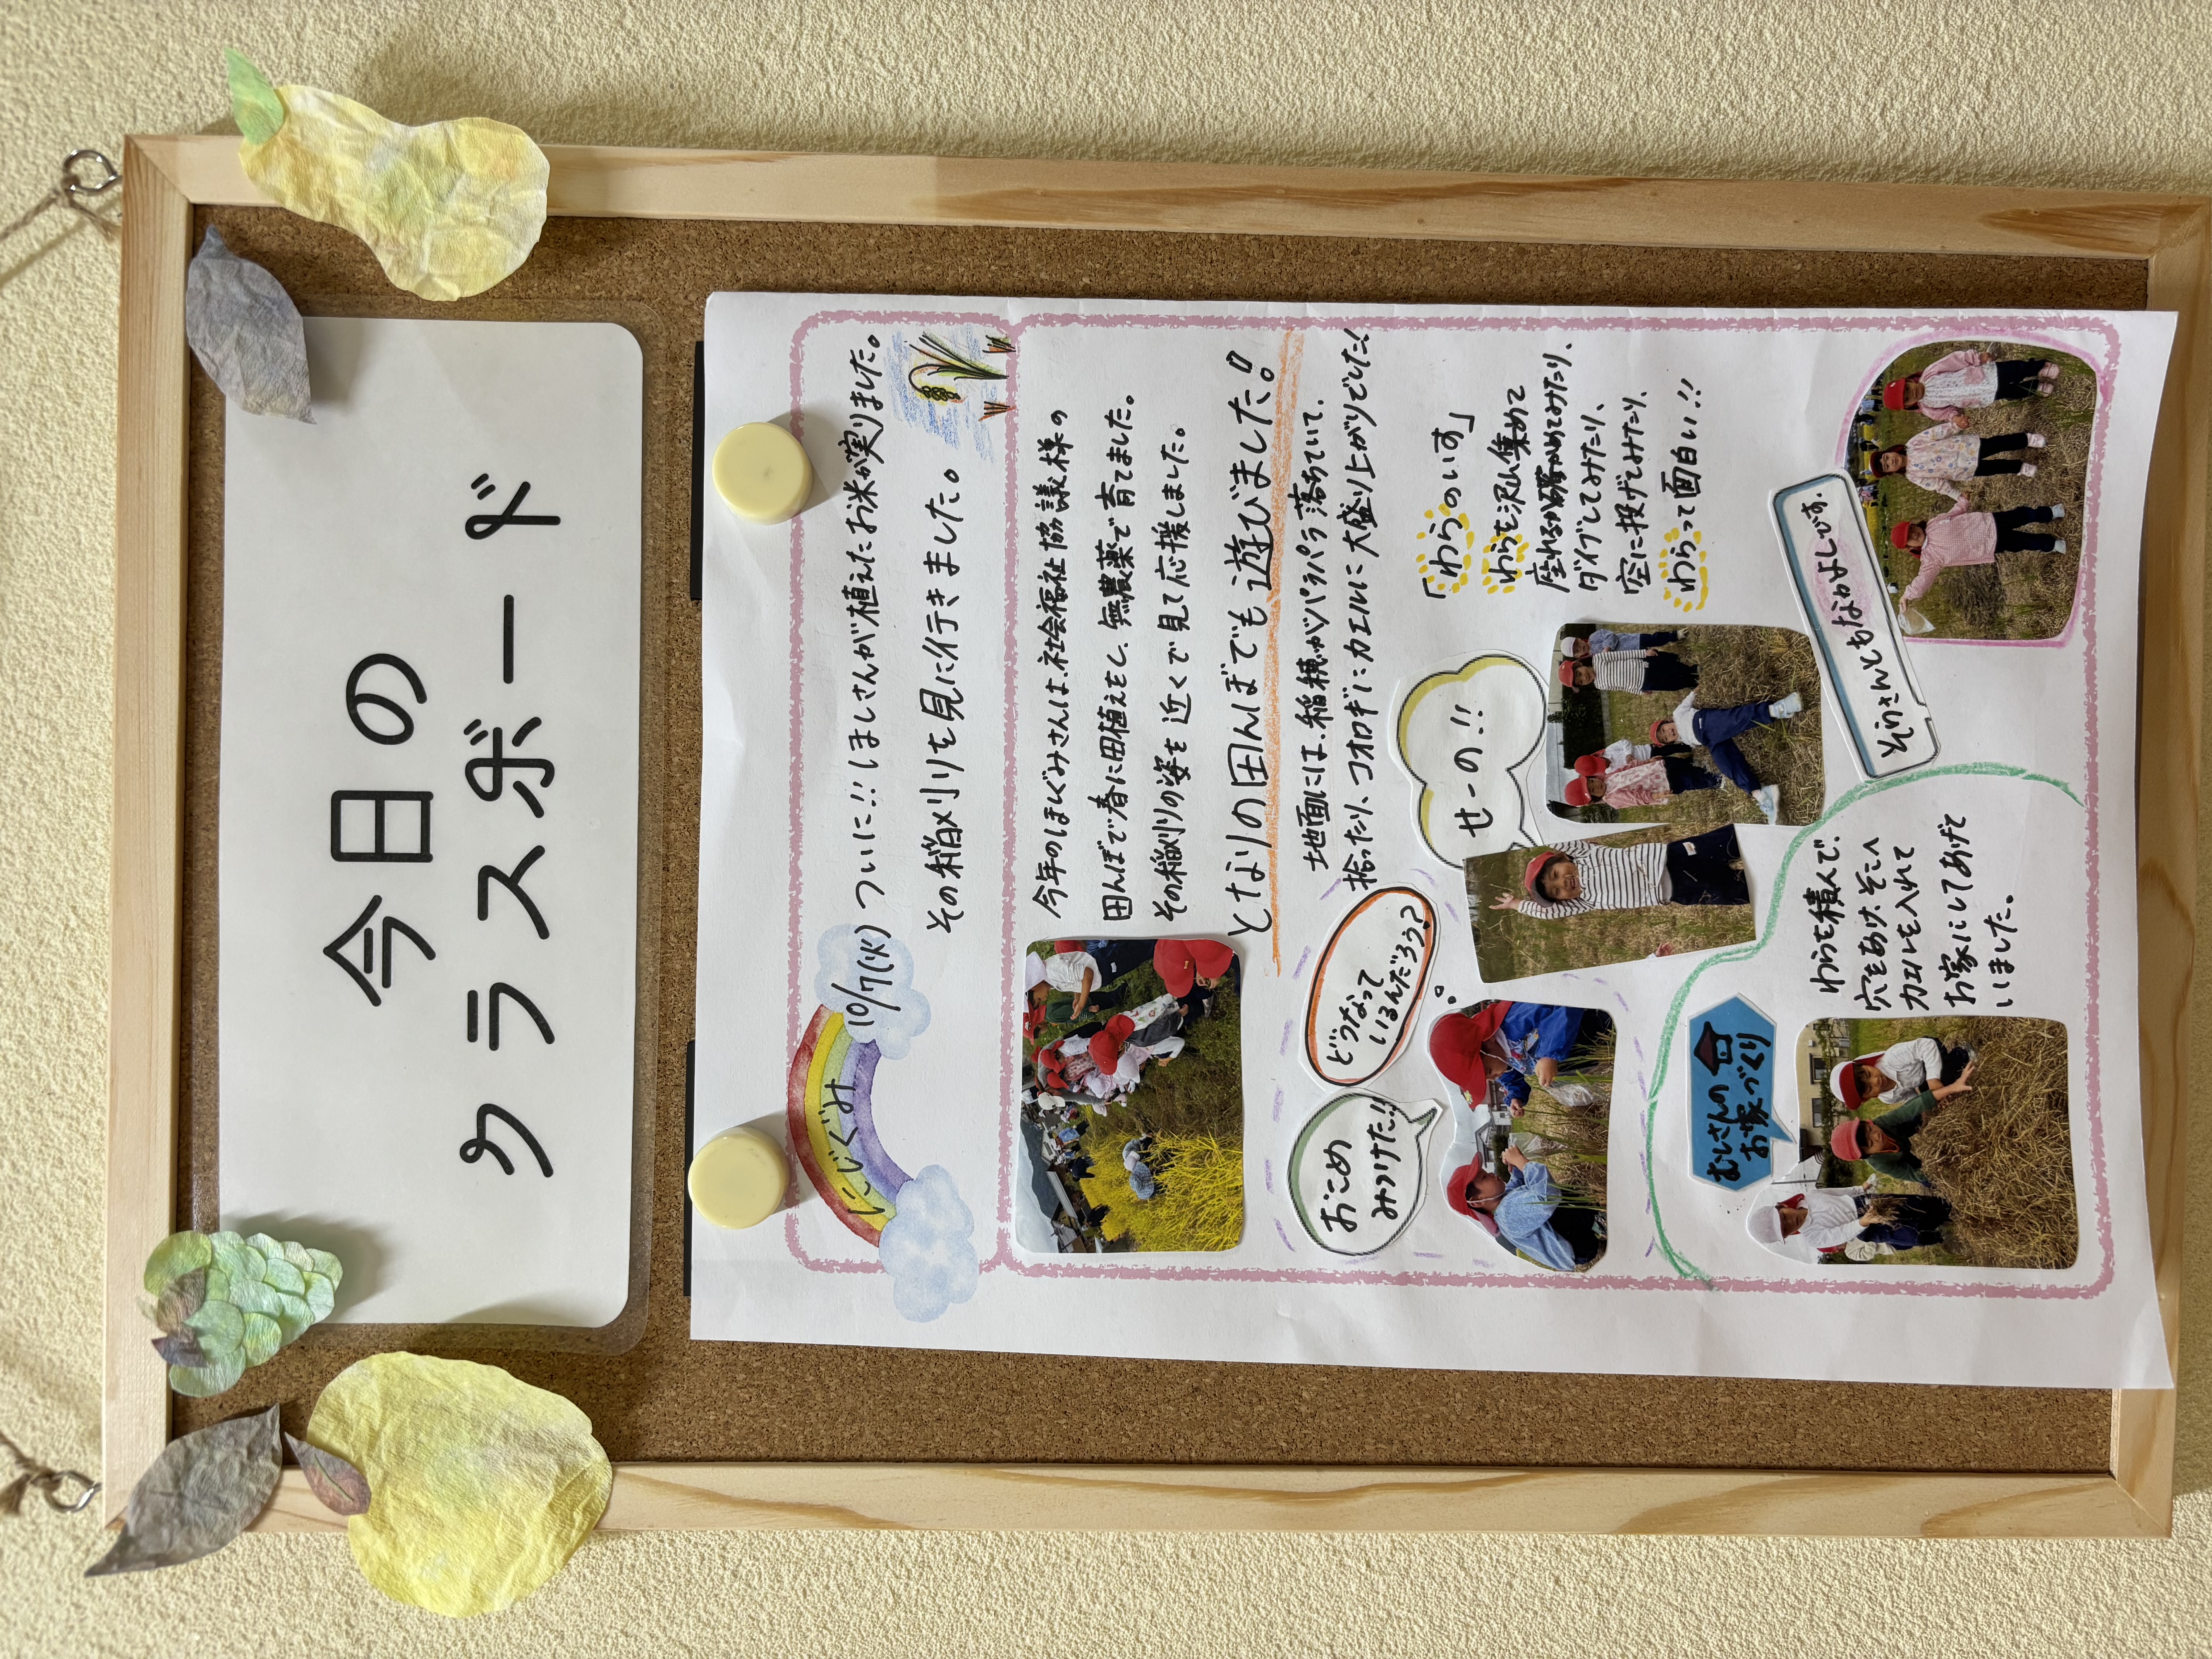 今日の
クラスボード
にじぐみ
10/7(火) ついに!!ほしさんが植えたお米が実りました。
その稲刈りを見に行きました。
今年のほしぐみさんは、社会福祉協議様の
田んぼで春に田植えをし、無農薬で育てました。
その稲刈りの姿を近くで見て応援しました。
となりの田んぼでも遊びました!!
地面には、稲穂がパラパラ落ちていて、
拾ったり、コオロギに カエルに 大盛り上がりでした!
おこめ
みつけた!!
どうなって
いるんだろう?
せーの!!
「わらのいす」
わらを沢山集めて
座れるか確かめてみたり、
ダイブしてみたり、
空に投げてみたり、
わらって面白い!!
むしさんの
お家づくり
わらを積んで、
穴をあけ、そこへ
カエルを入れて
お家にしてあげて
いました。
そらさんともなかよしです。